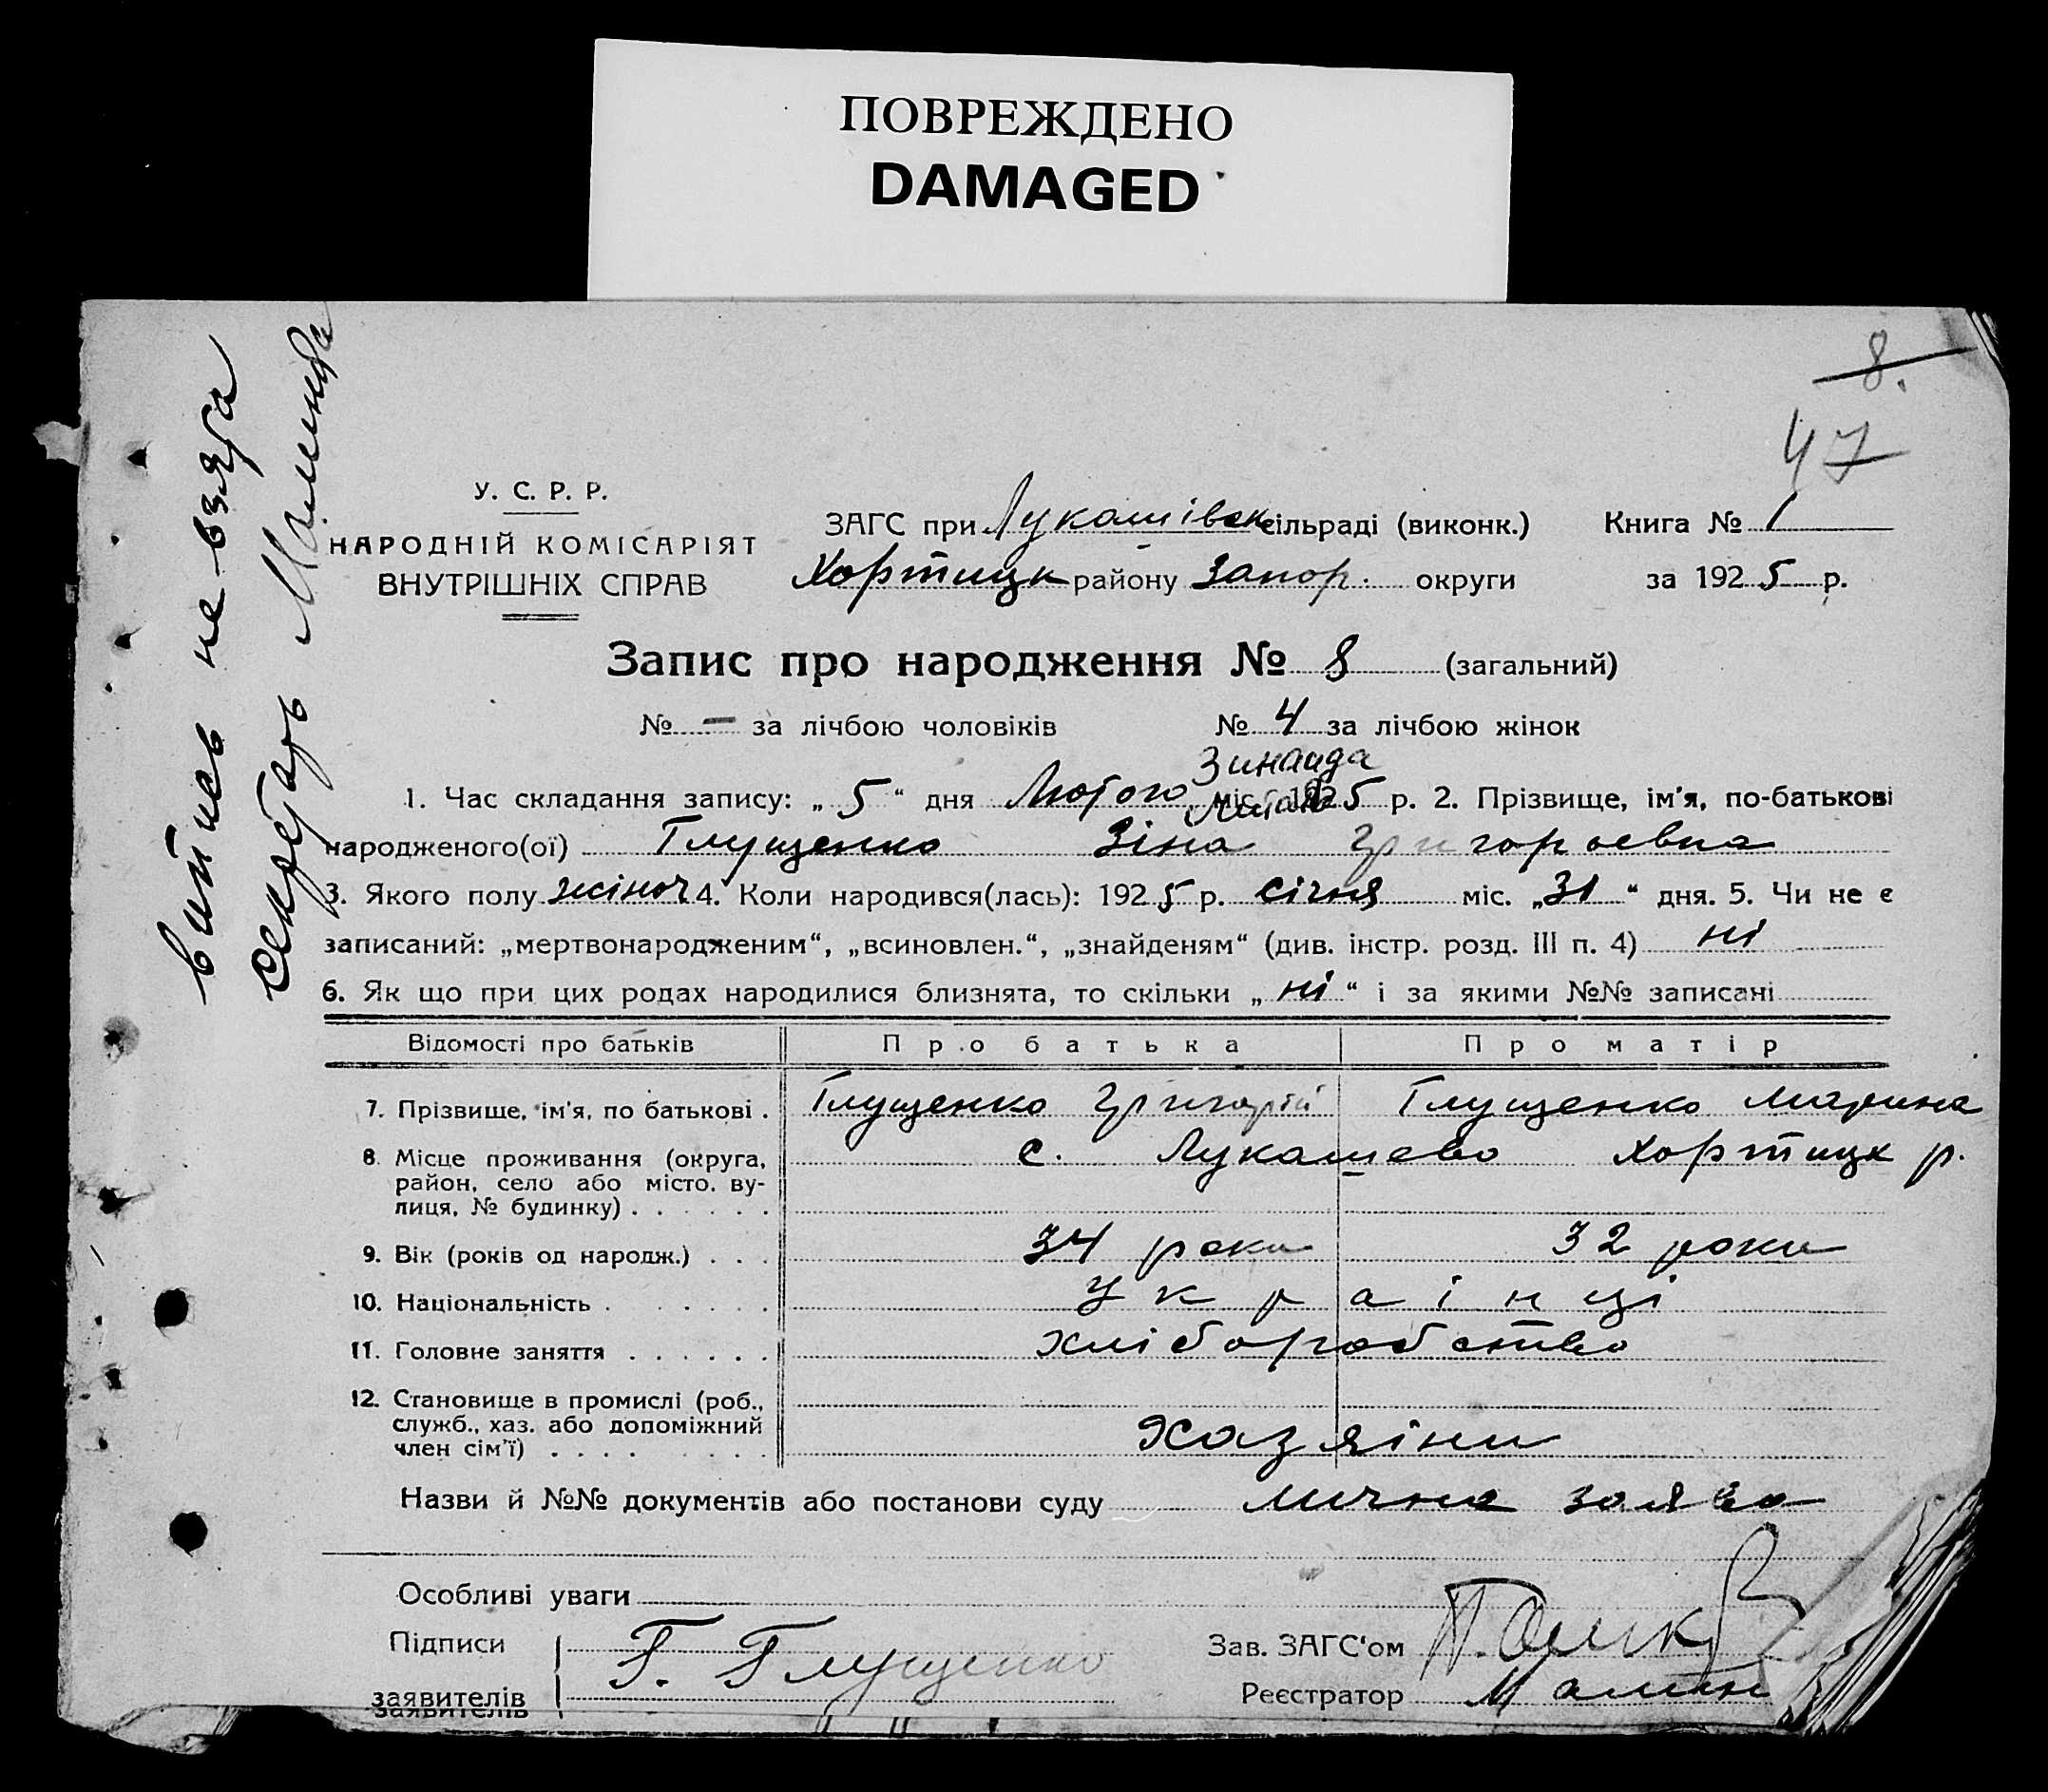 ПОВРЕЖДЕНО
DAMAGED
8.
47
випись не взята
секретарь
У. С. Р. Р.
НАРОДНІЙ КОМІСАРІЯТ
ВНУТРІШНІХ СПРАВ
ЗАГС при Лукашівск сільраді (виконк.) Книга № 1
Хортицк району Запор. округи за 1925 р.
Запис про народження № 8 (загальний)
№ — за лічбою чоловіків № 4 за лічбою жінок
Зинаида
1. Час складання запису: „ 5 “ дня Лютого міс. 1925 р. 2. Прізвище, ім'я, по-батькові
народженого(ої) Глущенко Зіна Григорьевна
3. Якого полу жіноч 4. Коли народився(лась): 1925 р. січня міс. „31“ дня. 5. Чи не є
записаний: „мертвонародженим“, „всиновлен.“, „знайденям“ (див. інстр. розд. III п. 4) ні
6. Як що при цих родах народилися близнята, то скільки „ ні “ і за якими №№ записані
Відомості про батьків Про батька Про матір
7. Прізвище, ім'я, по батькові . Глущенко Григорій Глущенко Марина
8. Місце проживання (округа, с. Лукашево Хортицк р.
район, село або місто, ву-
лиця, № будинку) . . . . . .
9. Вік (років од народж.) . . . 34 роки 32 роки
10. Національність . . . . . . . Українці
11. Головне заняття . . . . . . хліборобство
12. Становище в промислі (роб.,
служб., хаз. або допоміжний
член сім'ї) . . . . . . . . Хазяіни
Назви й №№ документів або постанови суду лична заява
Особливі уваги
Підписи Г. Глущенко Зав. ЗАГС'ом
заявителів Реєстратор
заявителів